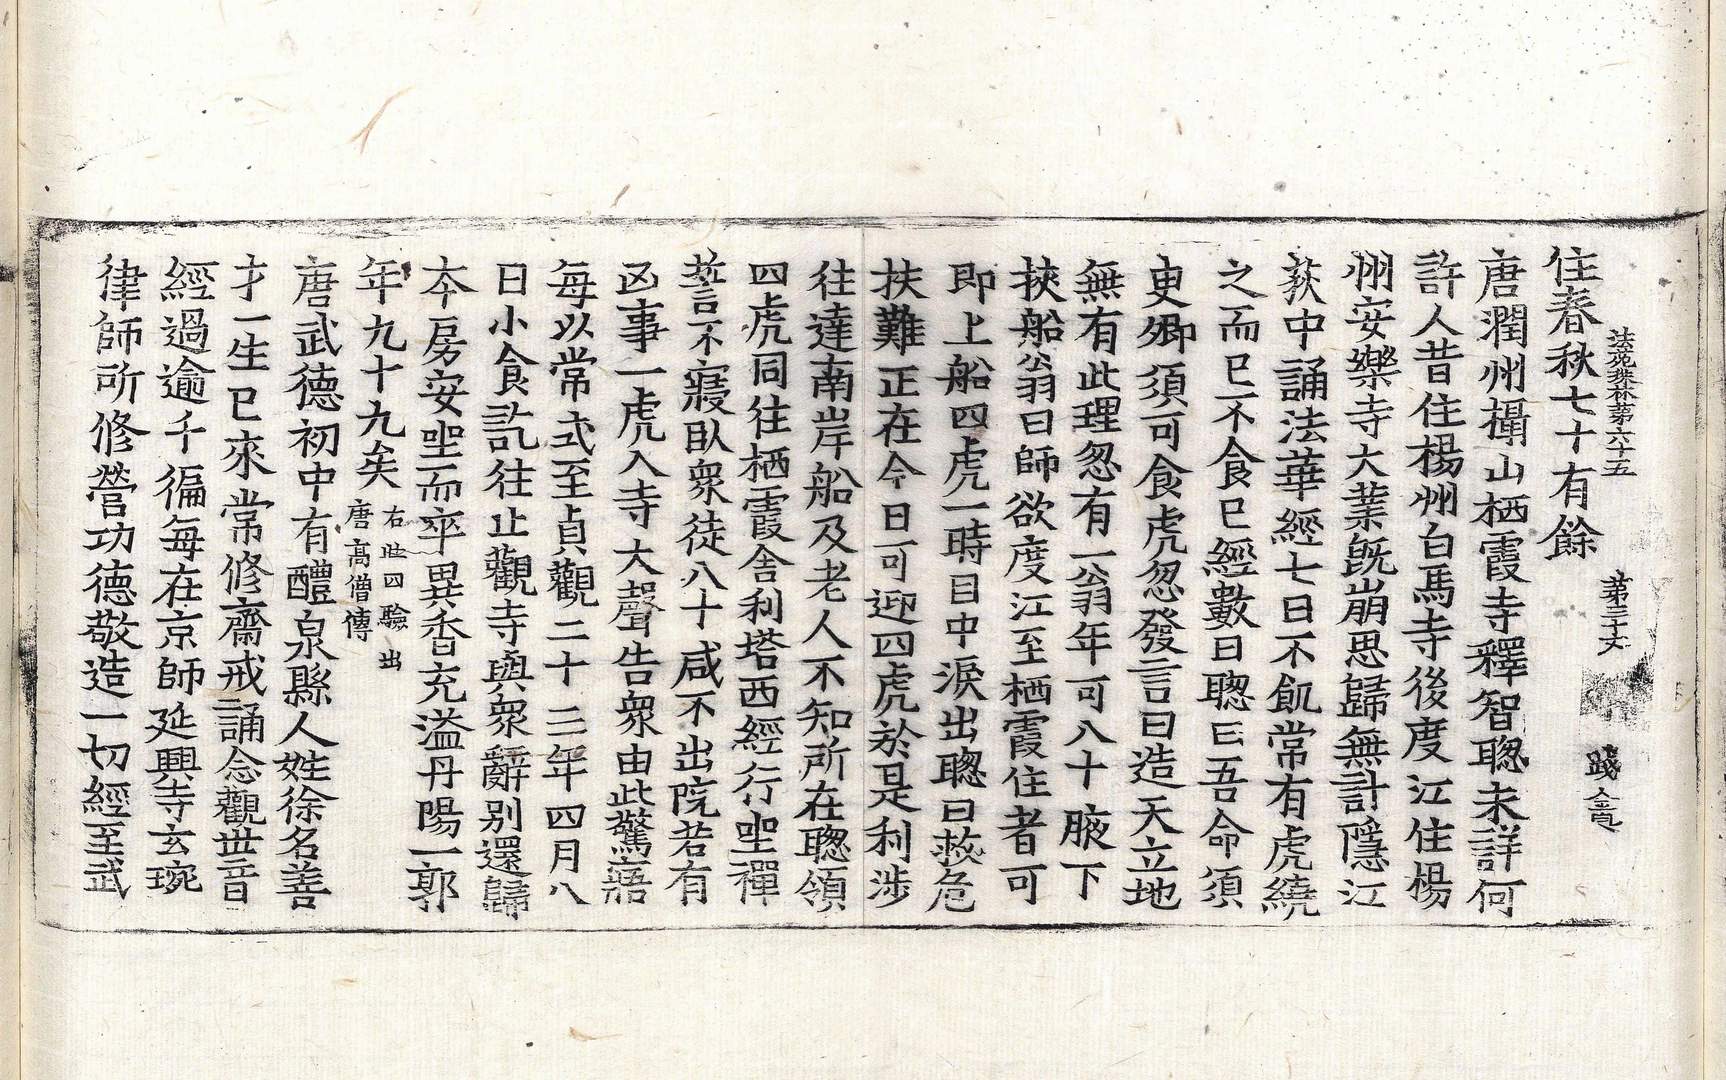 法苑珠林第六十五 第三十丈 踐 
住春秋七十有餘
唐潤州攝山栖霞寺釋智聰未詳何
許人昔住楊州白馬寺後度江住楊
州安樂寺大業旣崩思歸無計隱江
荻中誦法華經七日不飢常有虎繞
之而已不食已經數日聰曰吾命須
更卿須可食虎忽發言曰造天立地
無有此理忽有一翁年可八十腋下
挾船翁曰師欲度江至栖霞住者可
即上船四虎一時目中淚出聰曰救危
扶難正在今日可迎四虎於是利涉
往達南岸船及老人不知所在聰領
四虎同往栖霞舍利塔西經行坐禪
誓不寢卧衆徒八十咸不出院若有
凶事一虎入寺大聲告衆由此驚寤
每以常式至貞觀二十三年四月八
日小食訖往止觀寺與衆辭別還歸
本房安坐而卒異香充溢丹陽一郭
年九十九矣 右此四驗出
唐高僧傳
唐武德初中有醴泉縣人姓徐名善
才一生已來常修齋戒誦念觀世音
經過逾千徧每在京師延興寺玄琬
律師所修營功德敬造一切經至武